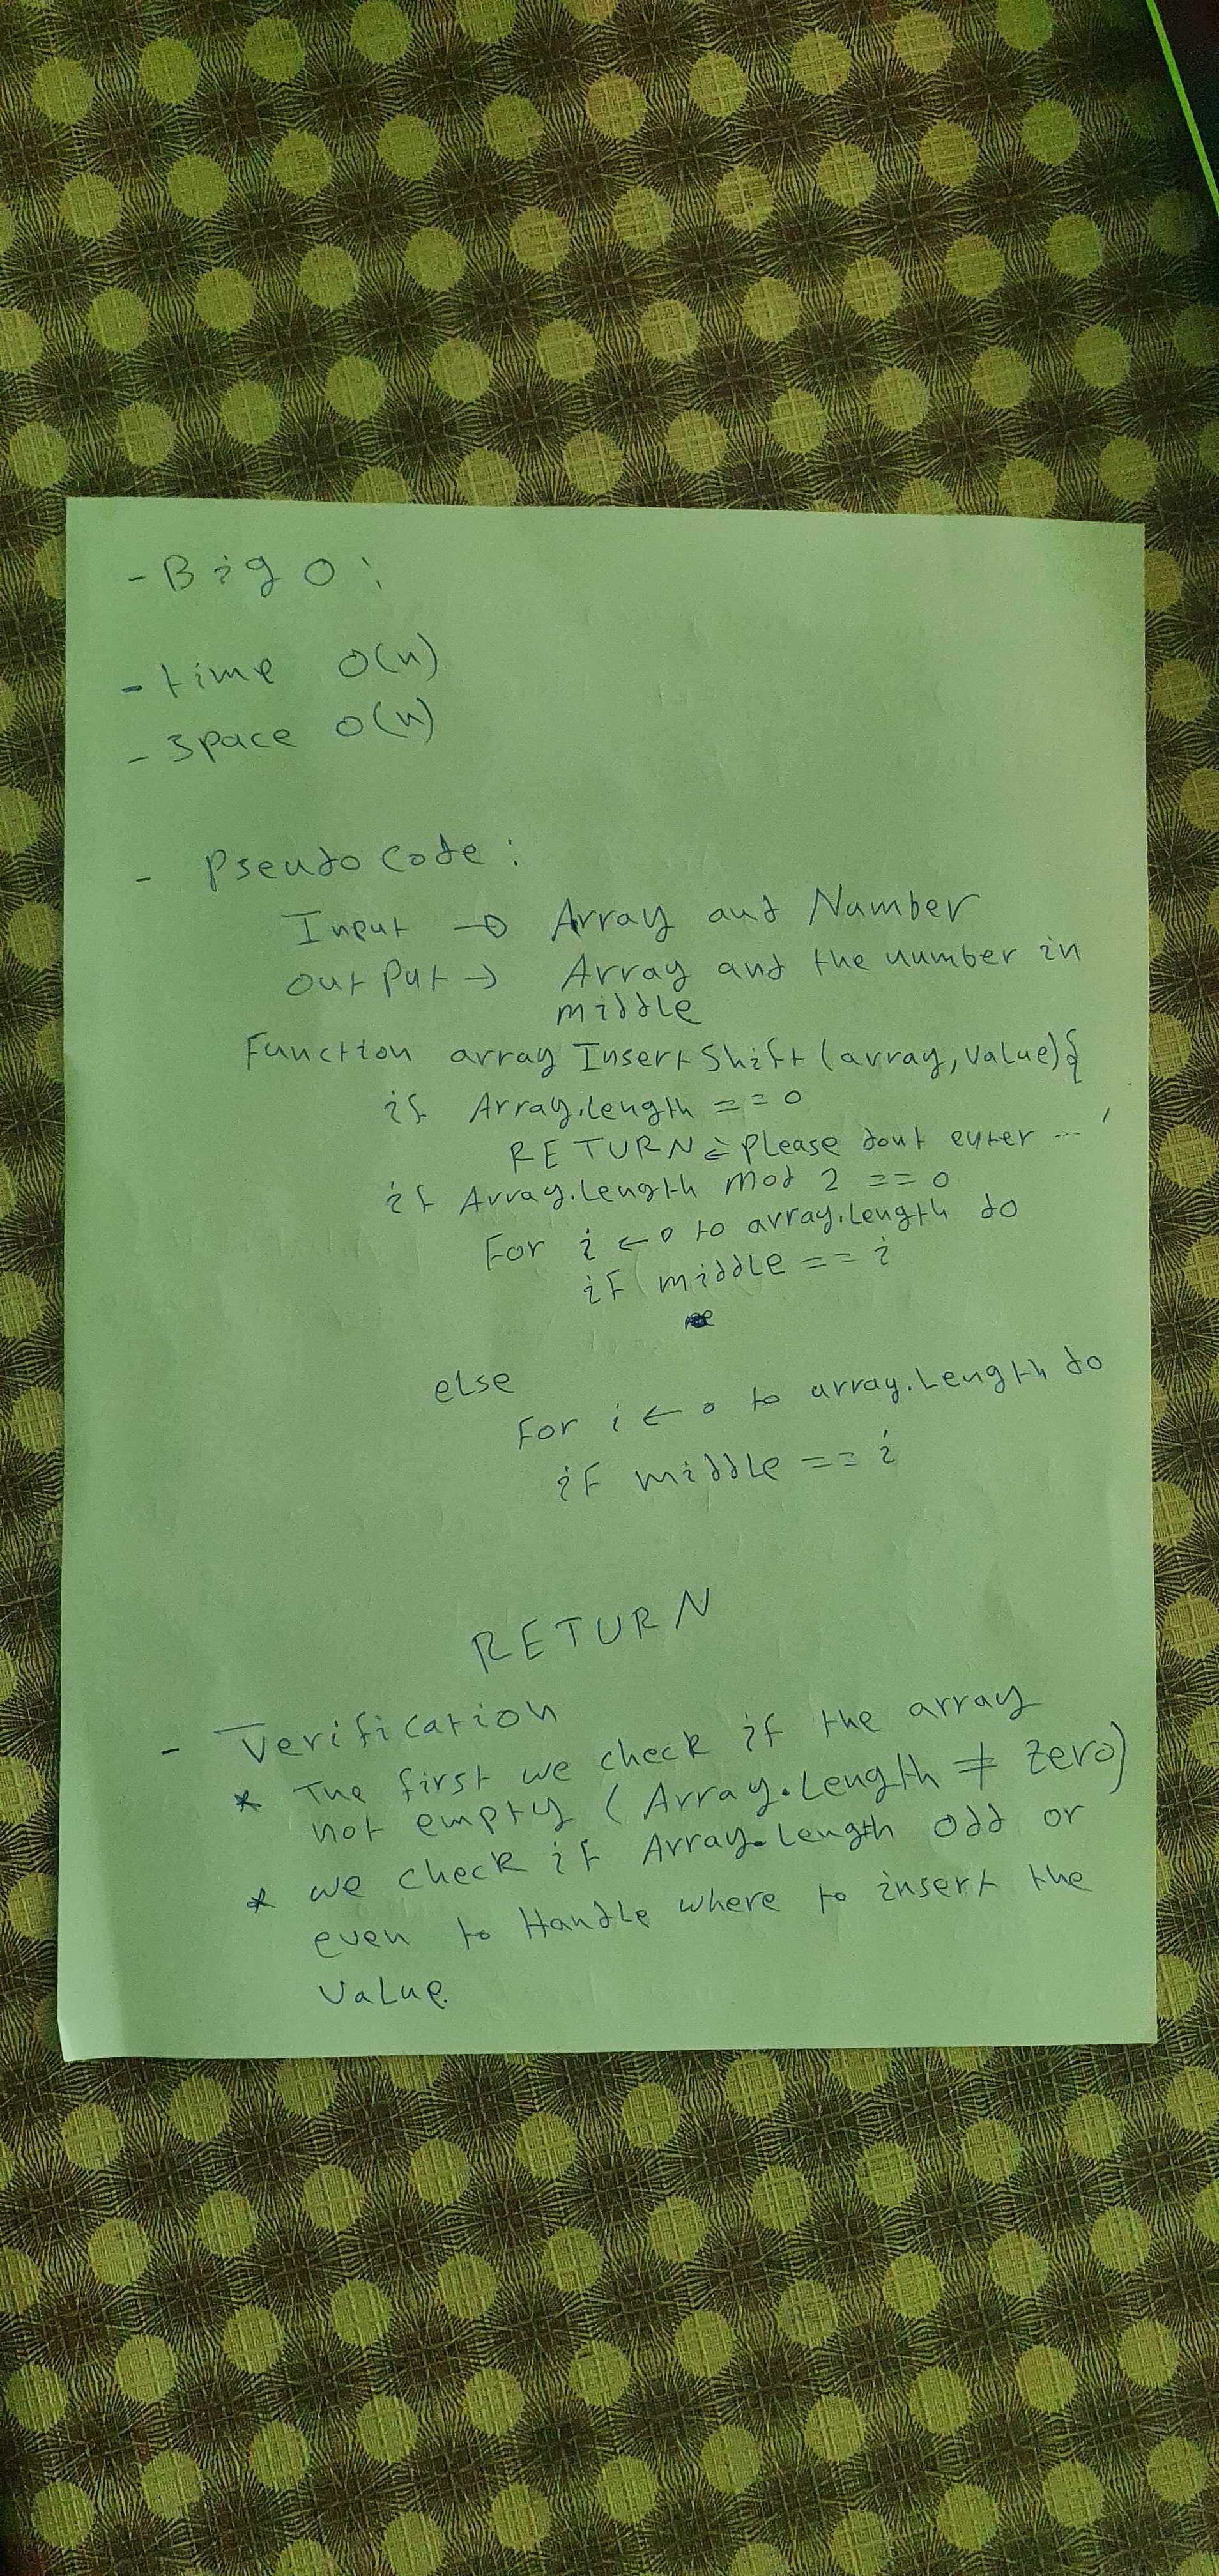 - Big O :
- time O(n)
- space O(n)
- Pseudo code :
Input → Array and Number
output → Array and the number in
middle
Function array Insert Shift (array, value){
if Array.length == 0
RETURN ← Please dont enter ...
if Array.length mod 2 == 0
For i ← 0 to array.length do
if middle == i
else
For i ← 0 to array.Length do
if middle == i
RETURN
- Verification
* The first we check if the array
not empty (Array.Length ≠ Zero)
* we check if Array.Length odd or
even to Handle where to insert the
value.